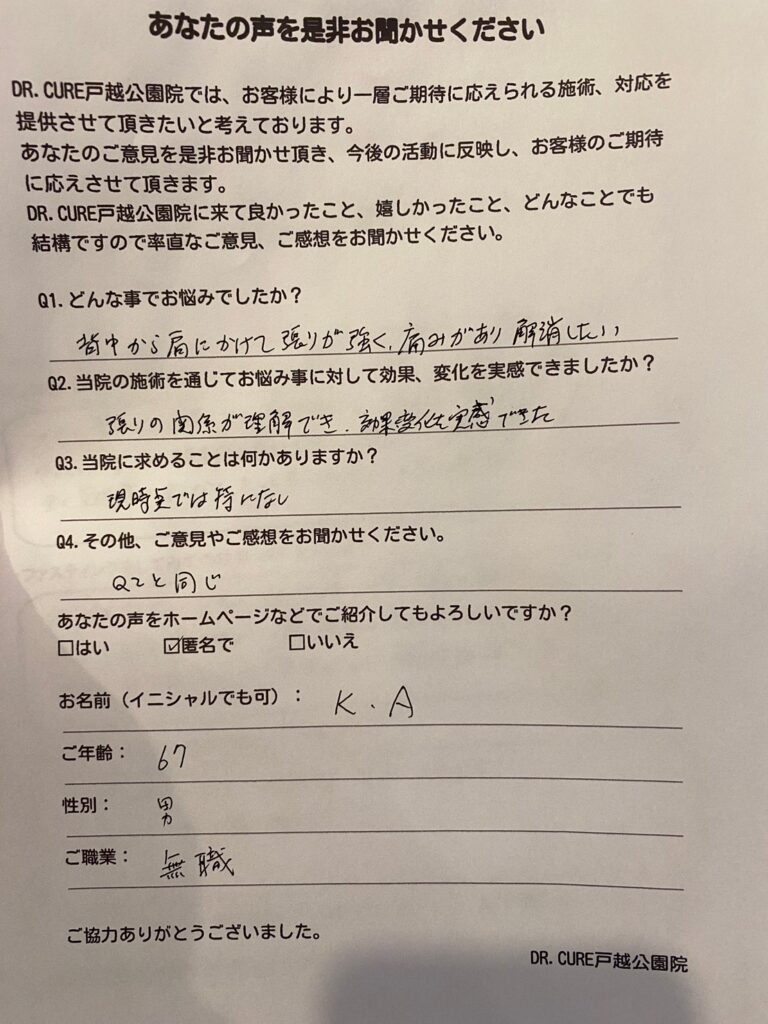 あなたの声を是非お聞かせください
DR. CURE戸越公園院では、お客様により一層ご期待に応えられる施術、対応を
提供させて頂きたいと考えております。
あなたのご意見を是非お聞かせ頂き、今後の活動に反映し、お客様のご期待
に応えさせて頂きます。
DR. CURE戸越公園院に来て良かったこと、嬉しかったこと、どんなことでも
結構ですので率直なご意見、ご感想をお聞かせください。
Q1. どんな事でお悩みでしたか？
背中から肩にかけて張りが強く、痛みがあり 解消したい
Q2. 当院の施術を通じてお悩み事に対して効果、変化を実感できましたか？
張りの関係が理解でき、効果変化を実感できた
Q3. 当院に求めることは何かありますか？
現時点では特になし
Q4. その他、ご意見やご感想をお聞かせください。
Q2と同じ
あなたの声をホームページなどでご紹介してもよろしいですか？
☐はい ☑匿名で ☐いいえ
お名前（イニシャルでも可）： K.A
ご年齢： 67
性別： 男
ご職業： 無職
ご協力ありがとうございました。
DR. CURE戸越公園院